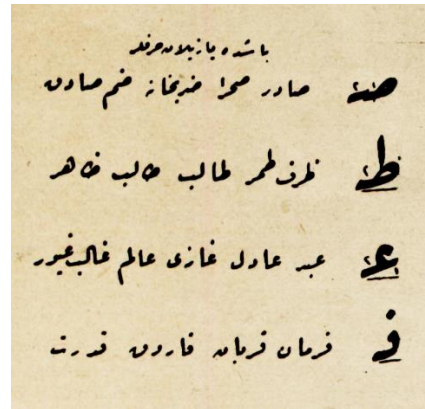 باشده یازیلان حرفلر
ص صادر صحرا ضربخانه ضم صادق
ط ظرف طمر طالب طالب ظاهر
ع عبد عادل غازی عالم غالب غیور
ف فرمان قربان فاروق قدرت